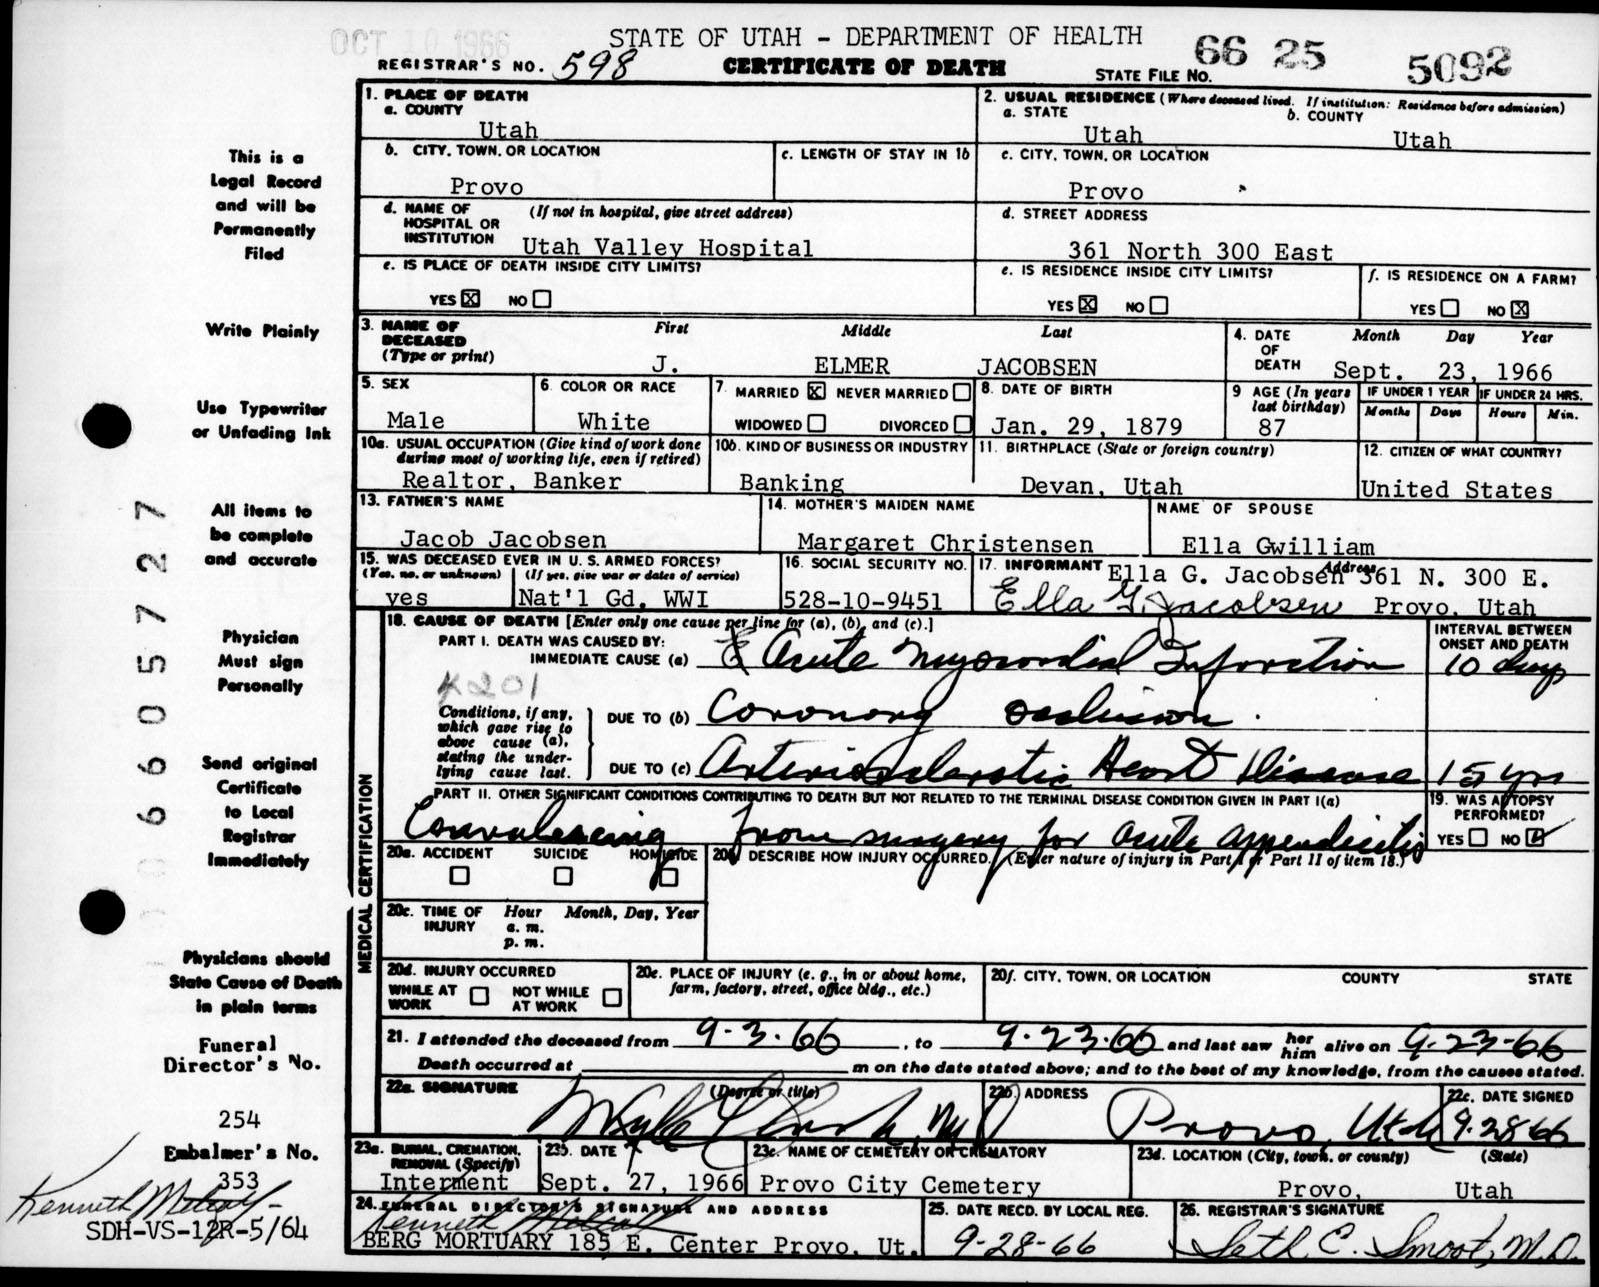 OCT 10 1966
STATE OF UTAH - DEPARTMENT OF HEALTH
66 25 5092
REGISTRAR'S NO. 598 CERTIFICATE OF DEATH STATE FILE NO.
1. PLACE OF DEATH
a. COUNTY
Utah
2. USUAL RESIDENCE (Where deceased lived. If institution: Residence before admission)
a. STATE b. COUNTY
Utah Utah
b. CITY, TOWN, OR LOCATION
Provo
c. LENGTH OF STAY IN 1b
c. CITY, TOWN, OR LOCATION
Provo
d. NAME OF (If not in hospital, give street address)
HOSPITAL OR
INSTITUTION Utah Valley Hospital
d. STREET ADDRESS
361 North 300 East
e. IS PLACE OF DEATH INSIDE CITY LIMITS?
YES X NO
e. IS RESIDENCE INSIDE CITY LIMITS?
YES X NO
f. IS RESIDENCE ON A FARM?
YES NO X
3. NAME OF First Middle Last
DECEASED
(Type or print) J. ELMER JACOBSEN
4. DATE Month Day Year
OF
DEATH Sept. 23, 1966
5. SEX
Male
6. COLOR OR RACE
White
7. MARRIED X NEVER MARRIED
WIDOWED DIVORCED
8. DATE OF BIRTH
Jan. 29, 1879
9 AGE (In years
last birthday)
87
IF UNDER 1 YEAR IF UNDER 24 HRS.
Months Days Hours Min.
10a. USUAL OCCUPATION (Give kind of work done
during most of working life, even if retired)
Realtor, Banker
10b. KIND OF BUSINESS OR INDUSTRY
Banking
11. BIRTHPLACE (State or foreign country)
Devan, Utah
12. CITIZEN OF WHAT COUNTRY?
United States
13. FATHER'S NAME
Jacob Jacobsen
14. MOTHER'S MAIDEN NAME
Margaret Christensen
NAME OF SPOUSE
Ella Gwilliam
15. WAS DECEASED EVER IN U. S. ARMED FORCES?
(Yes, no, or unknown) (If yes, give war or dates of service)
yes Nat'l Gd. WWI
16. SOCIAL SECURITY NO.
528-10-9451
17. INFORMANT Address
Ella G. Jacobsen 361 N. 300 E.
Ella G. Jacobsen Provo, Utah
18. CAUSE OF DEATH [Enter only one cause per line for (a), (b), and (c).]
INTERVAL BETWEEN
ONSET AND DEATH
PART I. DEATH WAS CAUSED BY:
IMMEDIATE CAUSE (a) Acute Myocardial Infarction 10 days
4201
Conditions, if any,
which gave rise to
above cause (a),
stating the under-
lying cause last.
DUE TO (b) Coronary occlusion.
DUE TO (c) Arteriosclerotic Heart Disease 15 yrs
PART II. OTHER SIGNIFICANT CONDITIONS CONTRIBUTING TO DEATH BUT NOT RELATED TO THE TERMINAL DISEASE CONDITION GIVEN IN PART I(a)
Convalescing from surgery for acute appendicitis
19. WAS AUTOPSY
PERFORMED?
YES NO
20a. ACCIDENT SUICIDE HOMICIDE
20b. DESCRIBE HOW INJURY OCCURRED. (Enter nature of injury in Part I or Part II of item 18.)
20c. TIME OF Hour Month, Day, Year
INJURY a. m.
p. m.
20d. INJURY OCCURRED
WHILE AT NOT WHILE
WORK AT WORK
20e. PLACE OF INJURY (e. g., in or about home,
farm, factory, street, office bldg., etc.)
20f. CITY, TOWN, OR LOCATION COUNTY STATE
21. I attended the deceased from 9-3-66, to 9-23-66 and last saw her him alive on 9-23-66
Death occurred at m on the date stated above; and to the best of my knowledge, from the causes stated.
22a. SIGNATURE (Degree or title)
M.D.
22b. ADDRESS
Provo, Utah
22c. DATE SIGNED
9-28-66
23a. BURIAL, CREMATION,
REMOVAL (Specify)
Interment
23b. DATE
Sept. 27, 1966
23c. NAME OF CEMETERY OR CREMATORY
Provo City Cemetery
23d. LOCATION (City, town, or county) (State)
Provo, Utah
24. FUNERAL DIRECTOR'S SIGNATURE AND ADDRESS
Kenneth Metcalf
BERG MORTUARY 185 E. Center Provo, Ut.
25. DATE RECD. BY LOCAL REG.
9-28-66
26. REGISTRAR'S SIGNATURE
Seth E. Smoot, M.D.
MEDICAL CERTIFICATION
This is a
Legal Record
and will be
Permanently
Filed
Write Plainly
Use Typewriter
or Unfading Ink
All items to
be complete
and accurate
Physician
Must sign
Personally
Send original
Certificate
to Local
Registrar
Immediately
Physicians should
State Cause of Death
in plain terms
Funeral
Director's No.
254
Embalmer's No.
353
Kenneth Metcalf
SDH-VS-12R-5/64
6605727